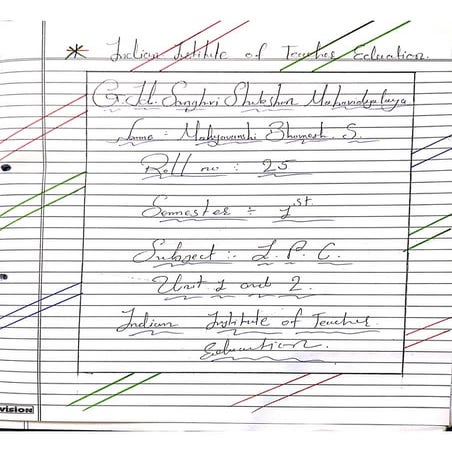 * Indian Institute of Teacher Education.
G.H. Sanghvi Shikshan Mahavidyalaya
Name : Mahyavanshi Bhavnesh. S.
Roll no : 25
Semester : 1st
Subject : L. P. C.
Unit 1 and 2.
Indian Institute of Teacher
Education.
vision